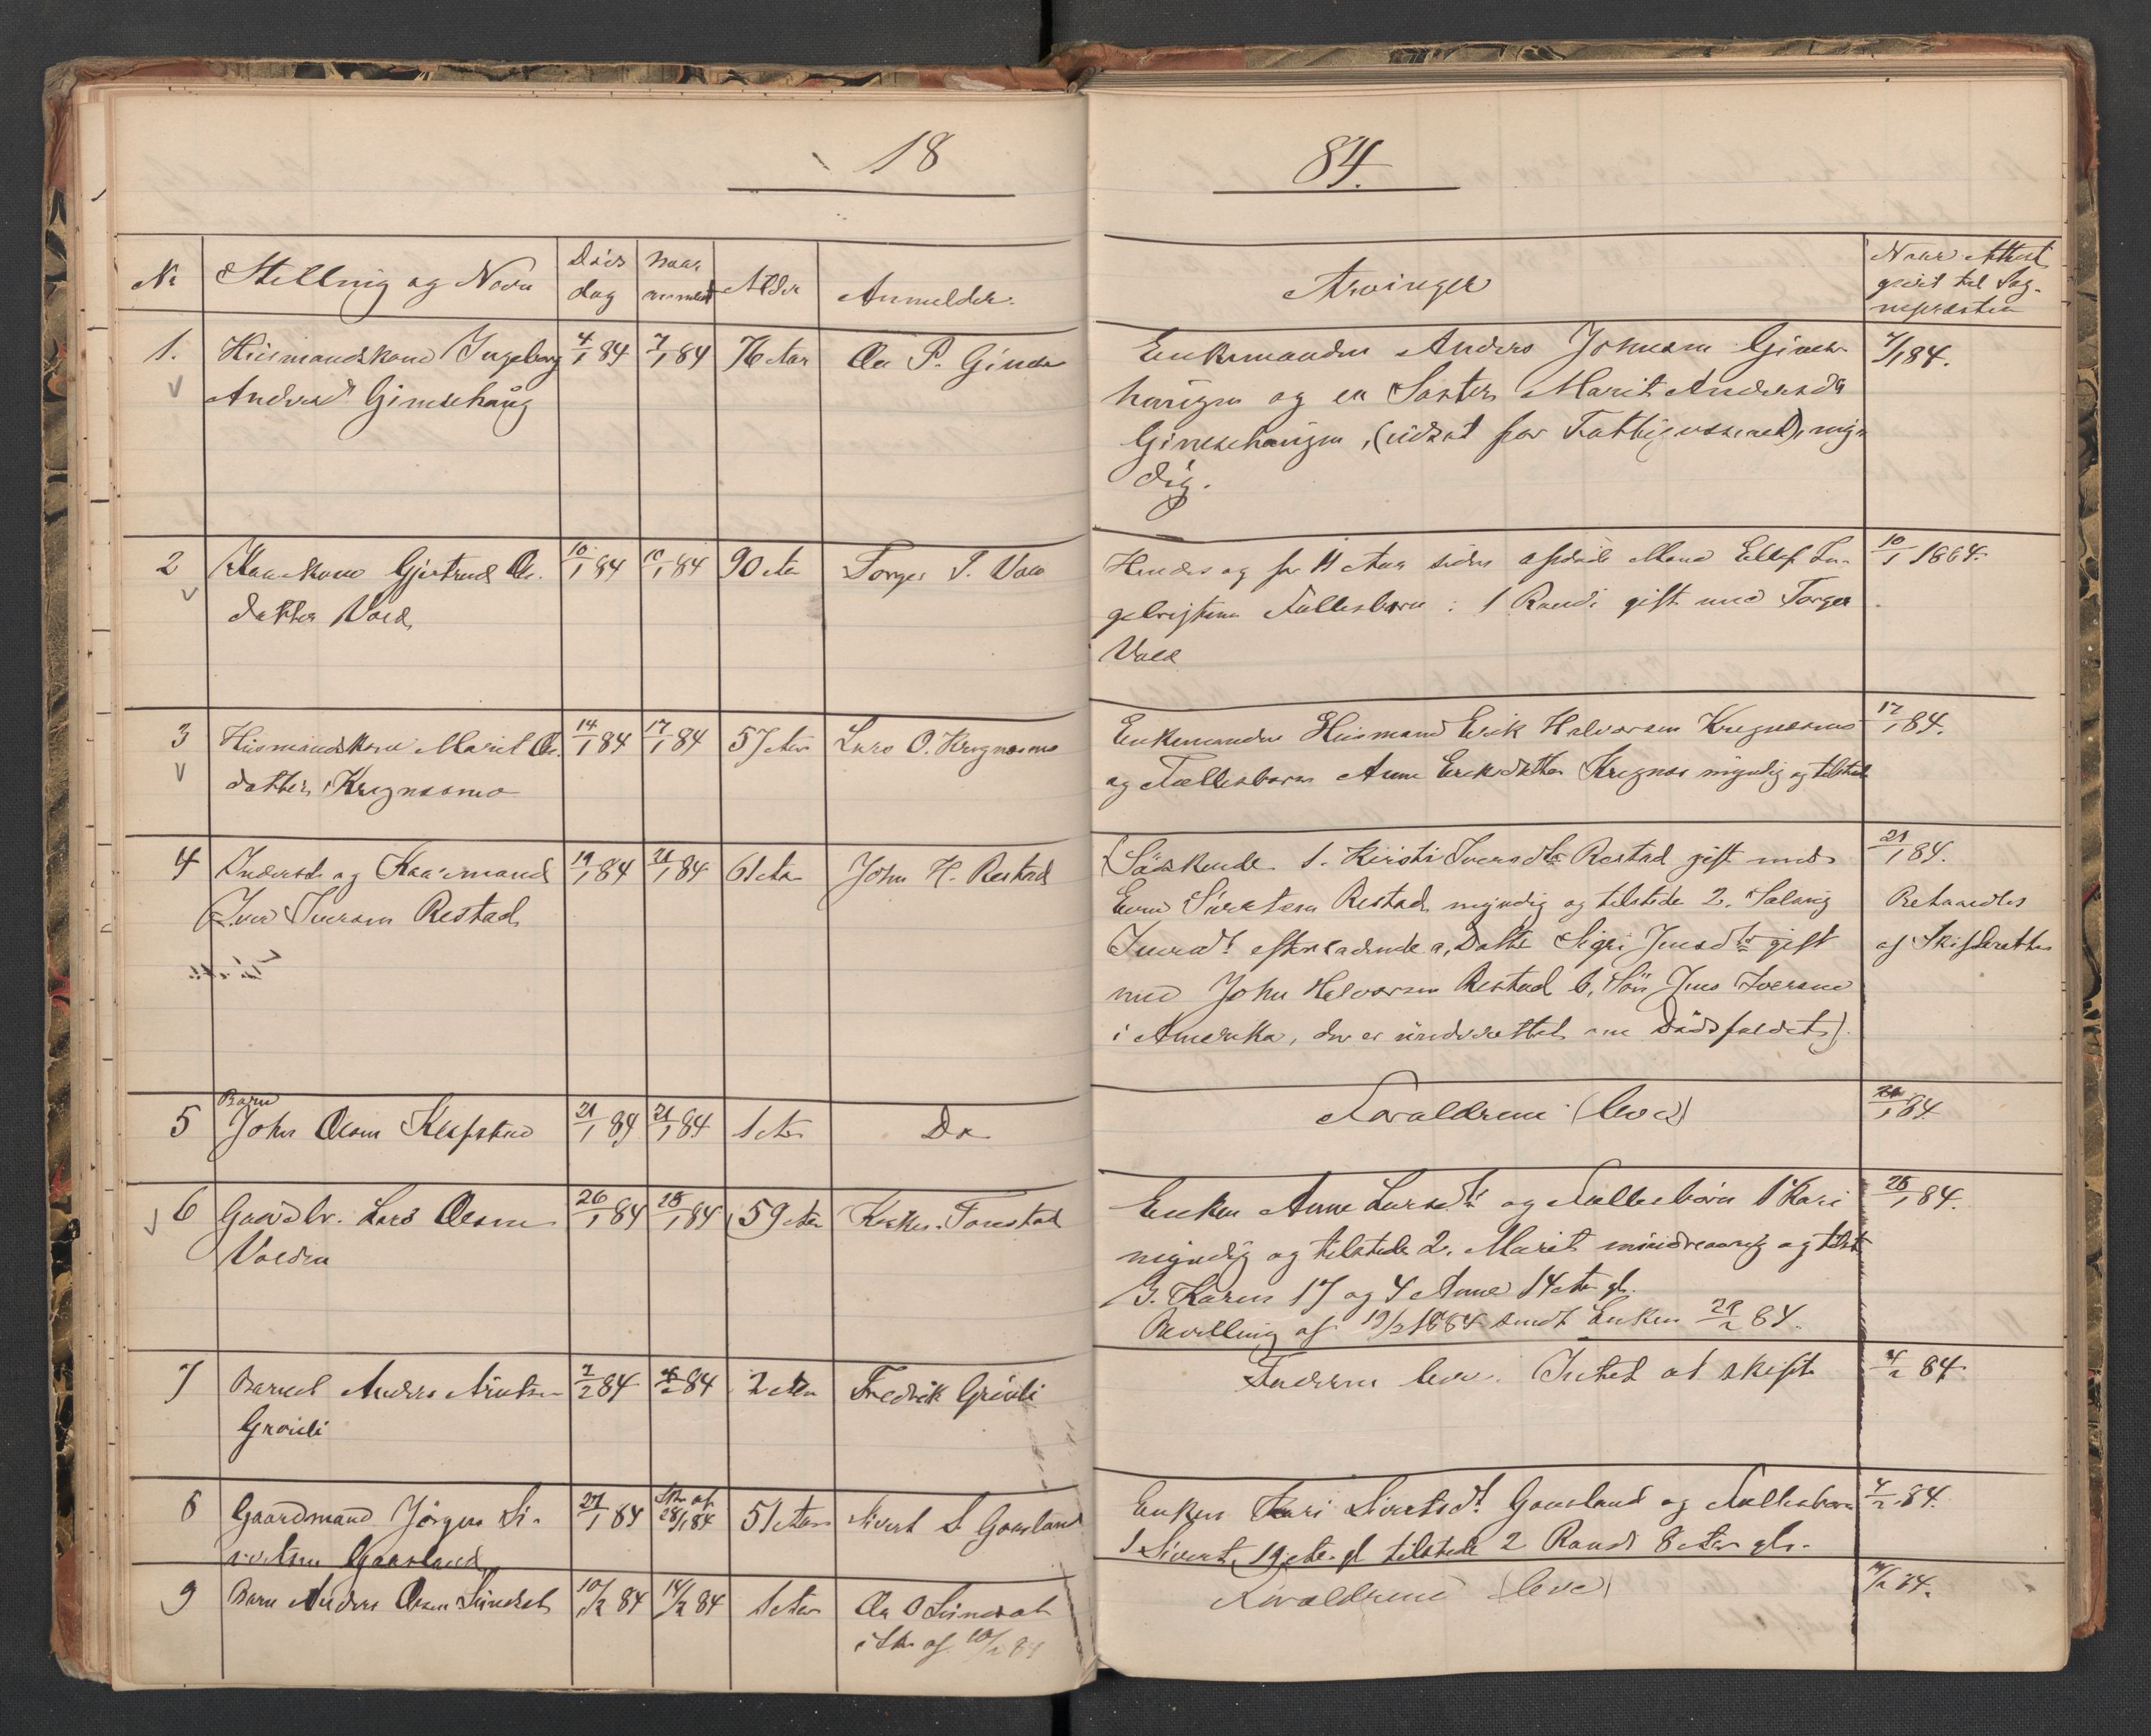 18
84.
Nr
Stelling og Navn
Døds
dag
naar
anmeldt
Alder
Anmelder.
Arvinger
Naar Attest
givet til Sog-
nepræsten
1. Huusmandskone Ingeborg 4/1 84 7/1 84 76 Aar Ole P. Gimse
Andersd Gimsehaug
Enkemanden Anders Johnsen Gimse- 7/1 84.
haugen og en Søster Marit Andersdtr
Gimsehaugen, (udsat for Fattigvæsenet), myn-
dig.
2 Kaarkone Gjertrud Ols. 10/1 84 10/1 84 90 Aar Torger P. Vold
datter Vold
Hendes og for 11 Aar siden afdøde Mand Ellef In- 10/1 1884.
gebrigtsens Fællesbarn: 1 Randi gift med Torger
Vold
3 Husmandskone Marit Ols. 14/1 84 17/1 84 57 Aar Lars O. Krognæsmo
datter Krognæsmo
Enkemanden Husmand Erik Halvorsen Krognæsmo 17/1 84.
og Fællesbarn Anne Eriksdatter Krognæs myndig og tilstede
4 Inderst og Kaarmand 19/1 84 21/1 84 61 Aar John H. Restad
Iver Iversen Restad
(Søskende 1. Kirsti Iversdtr Restad gift med 21/1 84.
Even Sivertsen Restad myndig og tilstede 2. Solvig Behandles
Iversdt efterladende a, Datter Sigri Jensdtr gift af Skifteretten
med John Halvorsen Restad b, Søn Jens Iversen
i Amerika, der er underrettet om Dødsfaldet).
Barn
5 John Olsen Krefstad 21/1 84 21/1 84 1 Aar Do
Forældrene (lever) 21/1 84
6 Gaardbr. Lars Olsen 26/1 84 28/1 84 59 Aar Kirkes. Tonstad
Volden
Enken Anne Larsdtr og Fællesbørn 1 Kari 28/1 84.
myndig og tilstede 2. Marit mindreaarig og tilst
3. Karen 17 og 4 Anne 14 Aar gl.
Bevilling af 19/2 1884 sendt Enken 29/2 84.
7 Barnet Anders Arntsen 2/2 84 4/2 84 2 Aar Fredrik Grinli
Grinli
Faderen lever. Intet at skifte 4/2 84
8 Gaardmand Jørgen Si- 27/1 84 Skr af 28/1 84 51 Aar Sivert S. Gaasland
vertsen Gaasland
Enken Kari Sivertsdt. Gaasland og Fællesbørn 4/2 84.
1 Sivert 19 Aar gl tilstede 2 Randi 8 Aar gl.
9 Barn Anders Olsen Sundset 10/2 84 14/2 84 1 Aar Ole O Sundset
i Skr af 10/2 84
Forældrene (lever) 14/2 84.